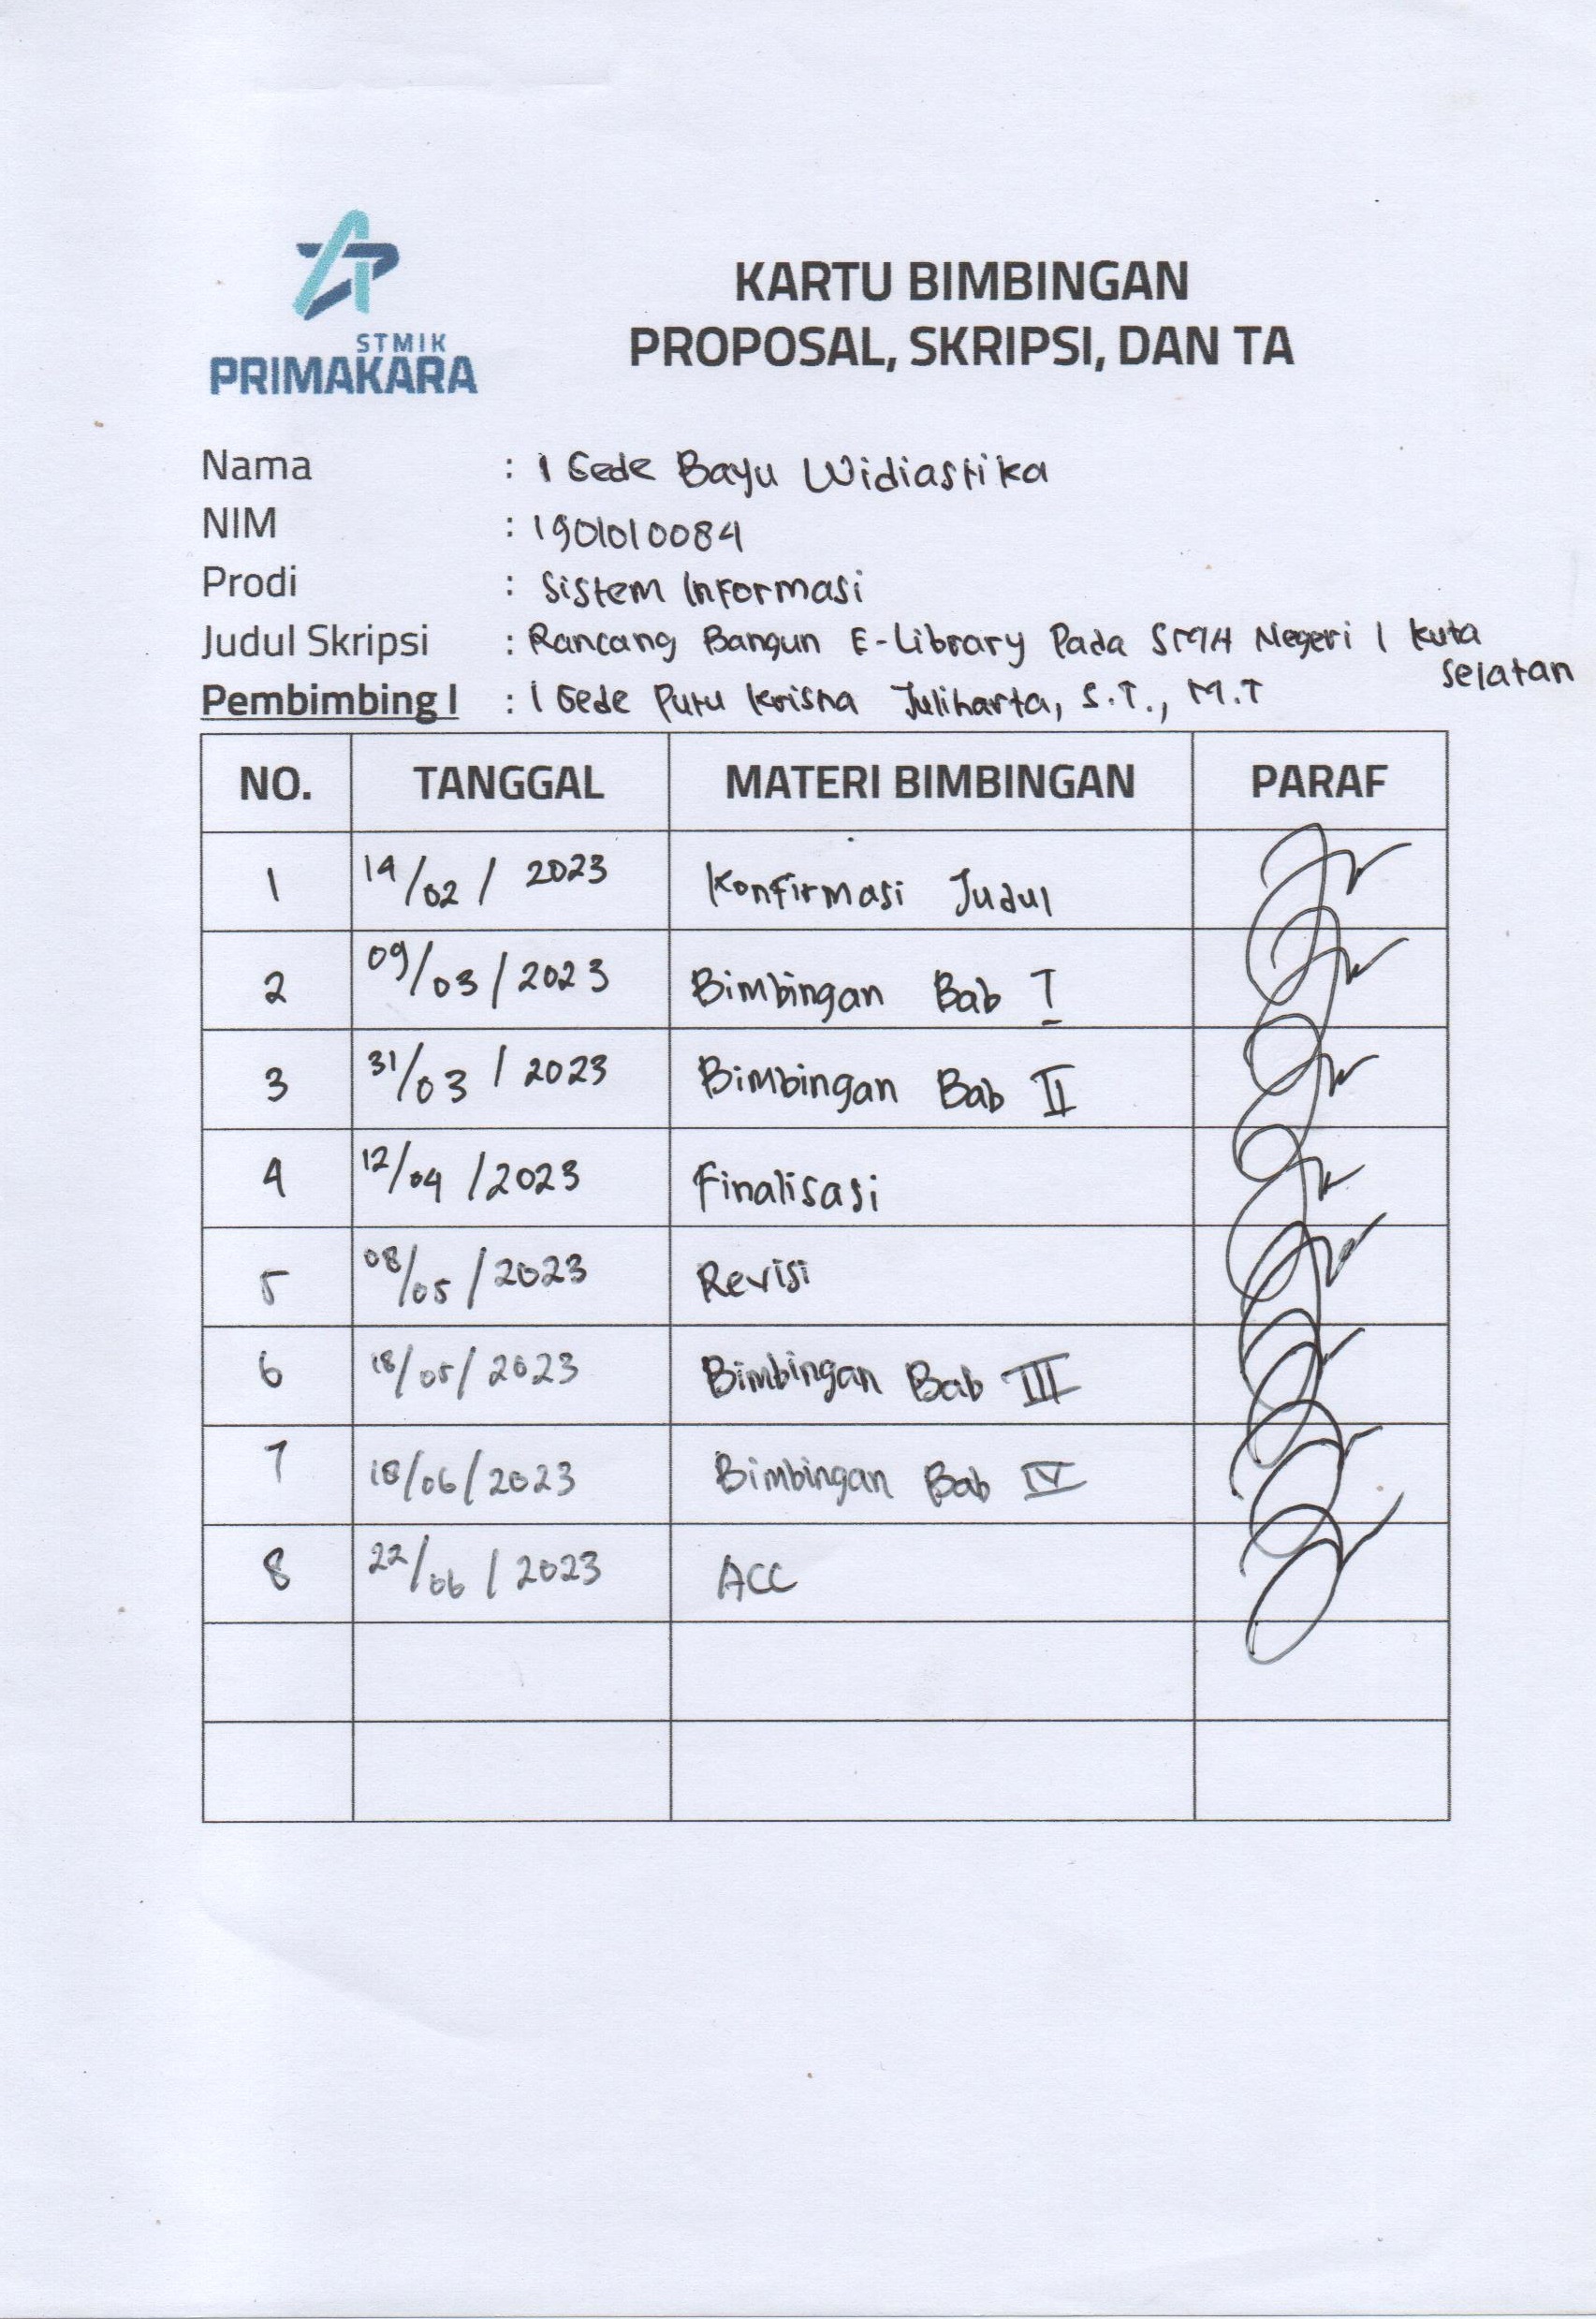 STMIK
PRIMAKARA
KARTU BIMBINGAN
PROPOSAL, SKRIPSI, DAN TA
Nama : I Gede Bayu Widiastika
NIM : 1901010084
Prodi : Sistem Informasi
Judul Skripsi : Rancang Bangun E-Library Pada SMA Negeri 1 Kuta
Selatan
Pembimbing I : I Gede Putu Krisna Juliharta, S.T., M.T
NO. TANGGAL MATERI BIMBINGAN PARAF
1 14/02/2023 Konfirmasi Judul
2 09/03/2023 Bimbingan Bab I
3 31/03/2023 Bimbingan Bab II
4 12/04/2023 Finalisasi
5 08/05/2023 Revisi
6 18/05/2023 Bimbingan Bab III
7 18/06/2023 Bimbingan Bab IV
8 22/06/2023 ACC